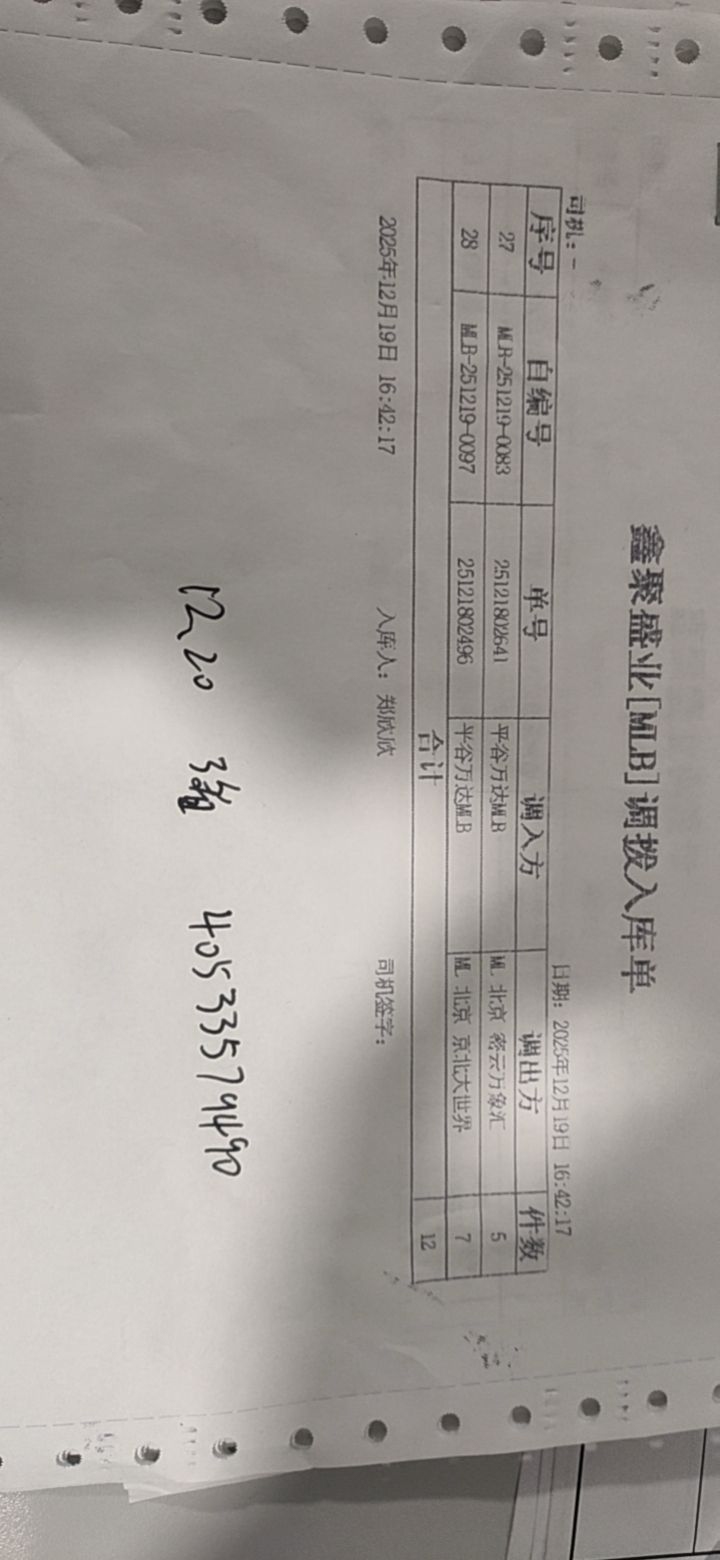 鑫聚盛业[MLB]调拨入库单
司机：- 日期：2025年12月19日 16:42:17
序号 自编号 单号 调入方 调出方 件数
27 MLB-251219-0083 25121802641 平谷万达MLB ML 北京 密云万象汇 5
28 MLB-251219-0097 25121802496 平谷万达MLB ML 北京 京北大世界 7
合计 12
2025年12月19日 16:42:17 入库人：郑欣欣 司机签字：
12.20 3箱 40533579490